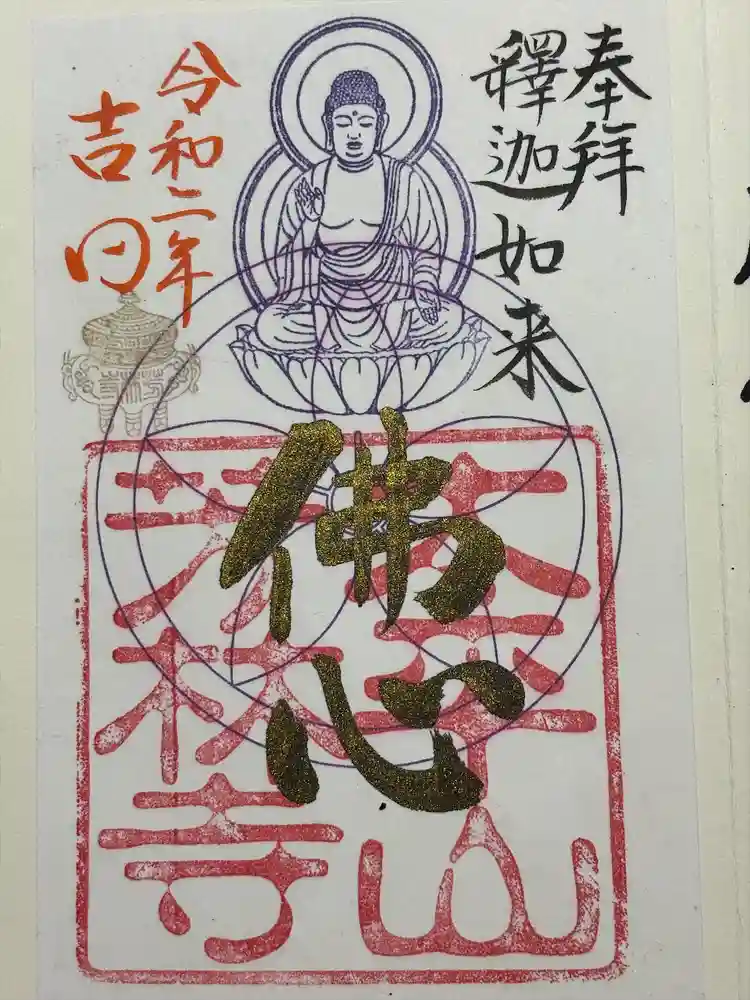 奉拜
釋迦如来
佛心
太平山
芳林寺
令和二年
吉日